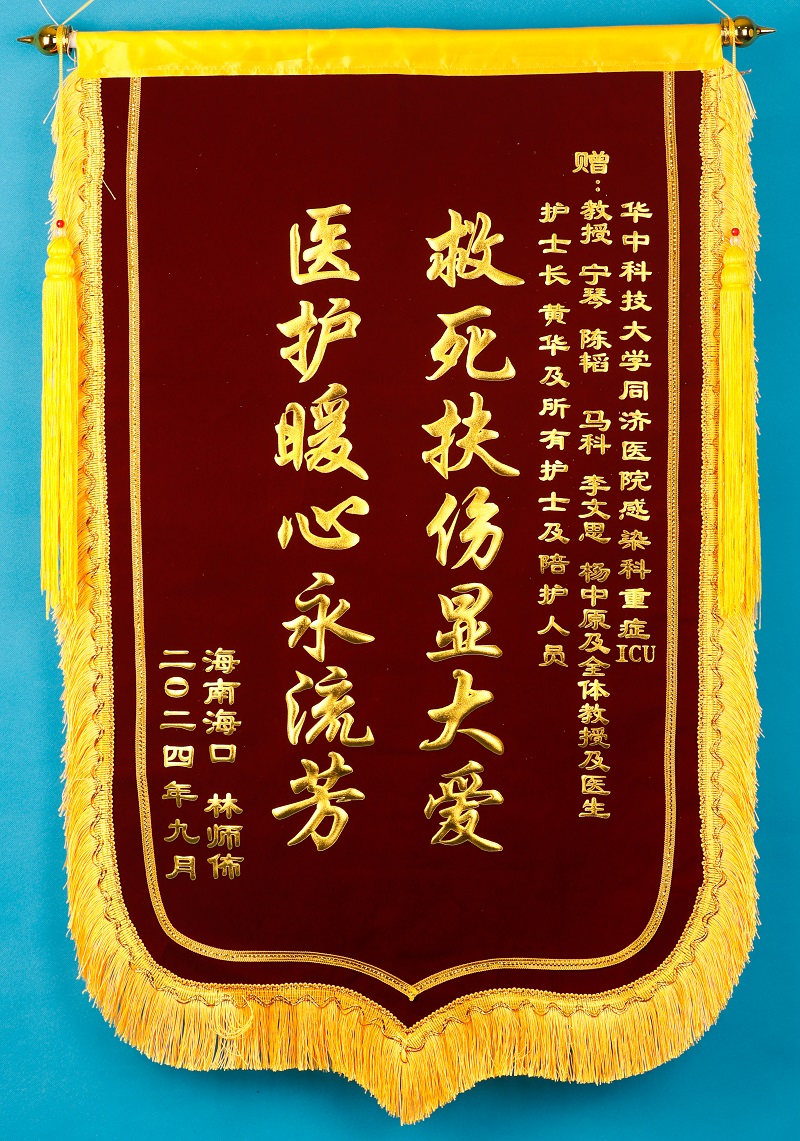 赠：
华中科技大学同济医院感染科重症ICU
教授 宁琴 陈韬 马科 李文思 杨中原及全体教授及医生
护士长 黄华及所有护士及陪护人员
救死扶伤显大爱
医护暖心永流芳
海南海口 林师佈
二〇二四年九月